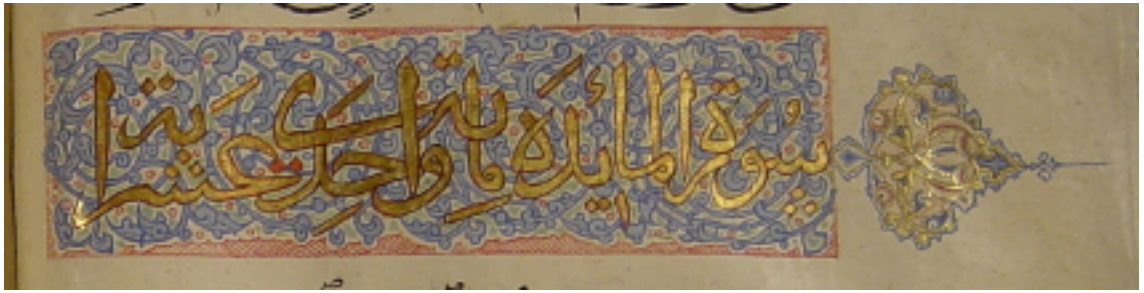 سُوَرة المائدَه ماية واحدى عشر اية